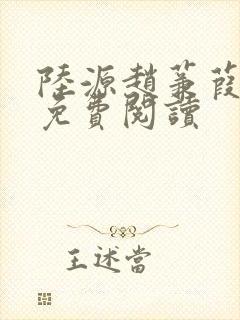 陸源趙蒹葭
免費閱讀
王述當